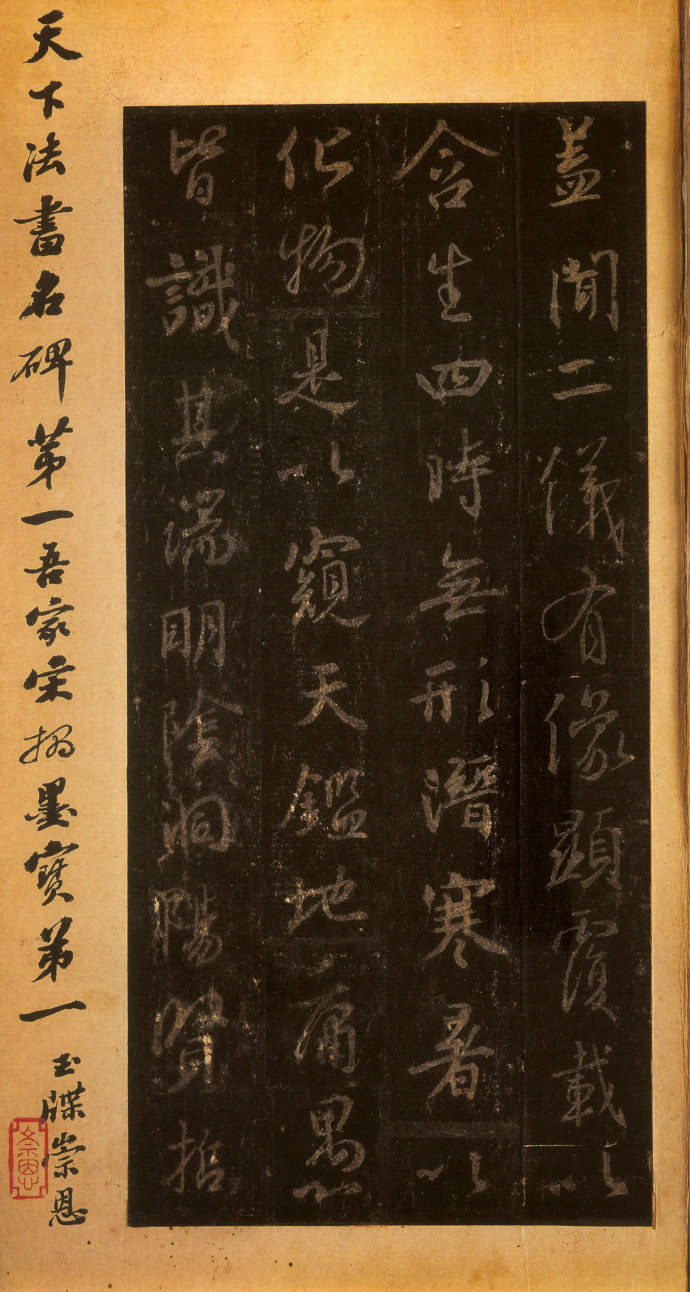 蓋聞二儀有像顯覆載以
含生四時無形潛寒暑以
化物是以窺天鑑地庸愚
皆識其端明陰洞陽賢哲
天下法書名碑第一吾家宋搨墨寶第一
玉牒崇恩
崇恩